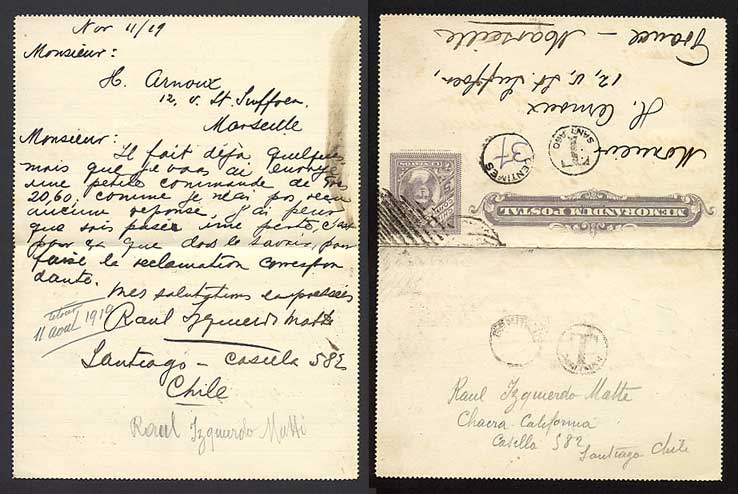 Nov 11/19
Monsieur:
H. Arnoux
12, v. St. Suffren.
Marseille
Monsieur:
Il fait déjà, quelques
mois que je vous ai envoyé
une petite commande de frs
20,60, comme je n'ai pas reçu
aucune réponse, j'ai peur
que sois passé une perte, c'est
pour ça que dois le savoir, pour
faire la reclamation correspon
dante.
Mes salutations empressées
Raul Izquierdo Matte
11 aout 1919
Santiago - Casilla 582
Chile
Raul Izquierdo Matti
France - Marseille
12, v. St Suffren,
H. Arnoux
Monsieur
T
SANTIAGO
CENTIMES
37
MEMORANDUM POSTAL
CENTIMES
T
Raul Izquierdo Matte
Chacra California
Casilla 582
Santiago Chile